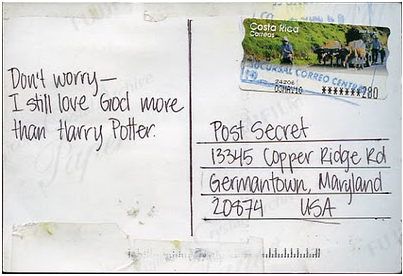 Don't worry—
I still love God more
than Harry Potter.
Costa Rica
Correos
SUCURSAL CORREO CENTRAL
24206
03MAY10
******280
Post Secret
13345 Copper Ridge Rd
Germantown, Maryland
20874 USA